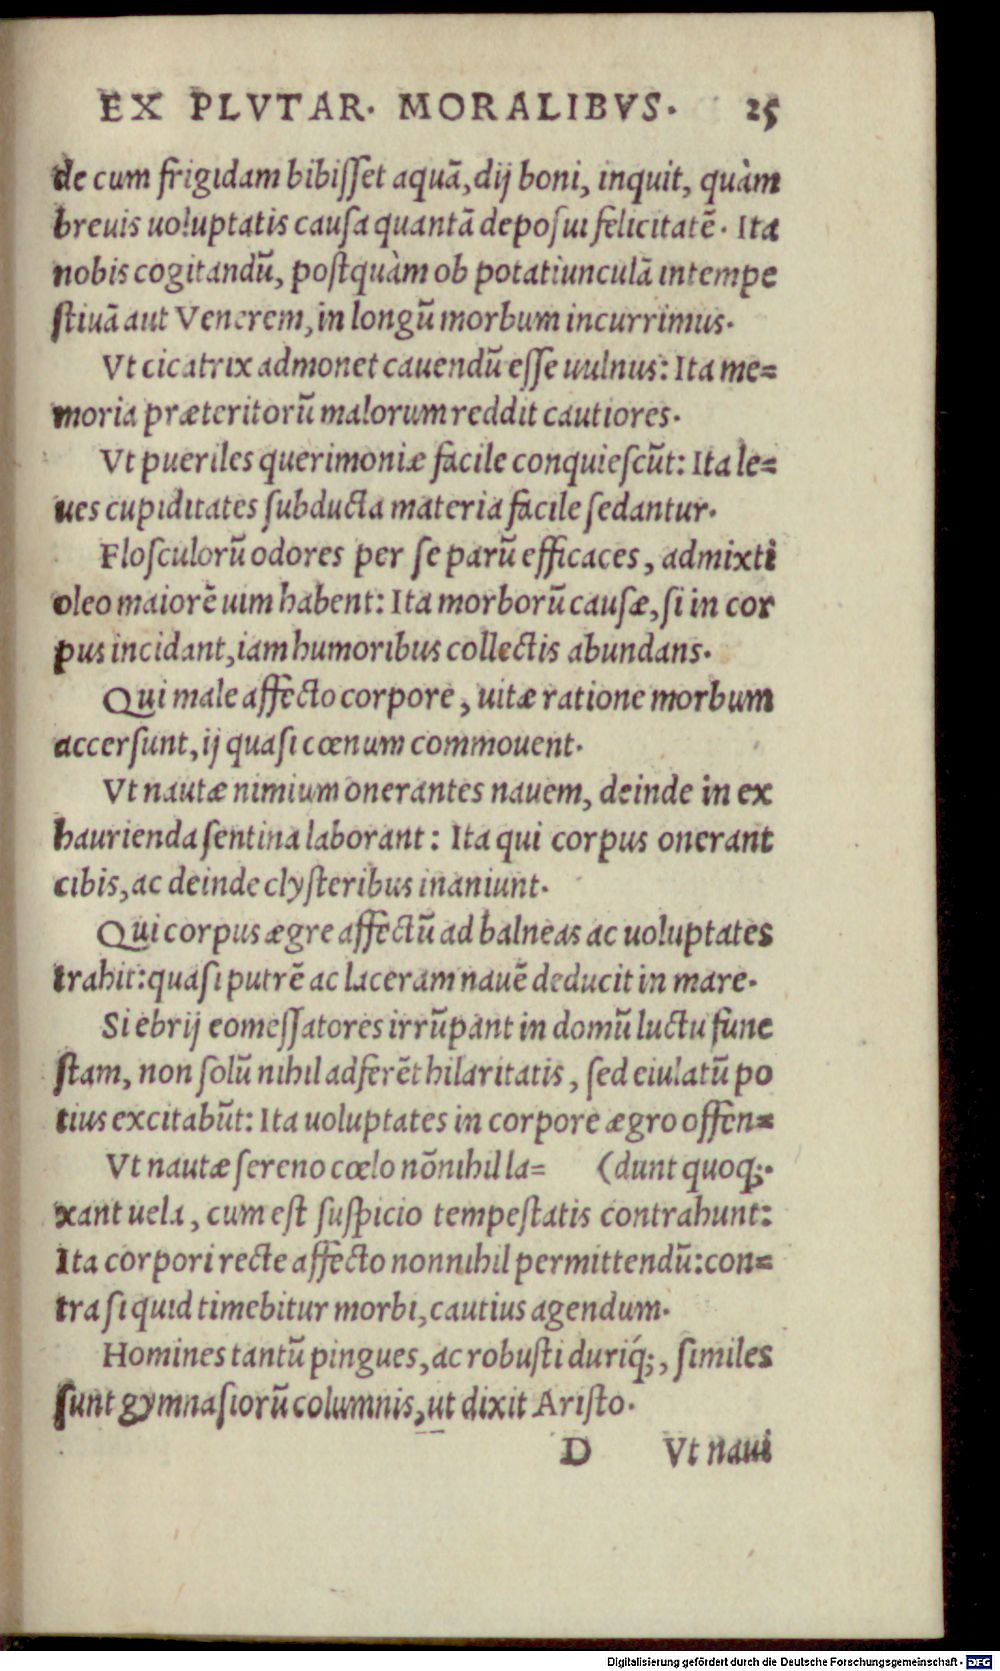 EX PLVTAR. MORALIBVS. 25
de cum frigidam bibisſet aquā, dij boni, inquit, quàm
breuis uoluptatis cauſa quantā depoſui felicitatē. Ita
nobis cogitandū, poſtquàm ob potatiunculā intempe
ſtiuā aut Venerem, in longū morbum incurrimus.
Vt cicatrix admonet cauendū eſſe uulnus: Ita me=
moria præteritorū malorum reddit cautiores.
Vt pueriles querimoniæ facile conquieſcūt: Ita le=
ues cupiditates ſubducta materia facile ſedantur.
Floſculorū odores per ſe parū efficaces, admixti
oleo maiorē uim habent: Ita morborū cauſæ, ſi in cor
pus incidant, iam humoribus collectis abundans.
Qui male affecto corpore, uitæ ratione morbum
accerſunt, ij quaſi cœnum commouent.
Vt nautæ nimium onerantes nauem, deinde in ex
haurienda ſentina laborant: Ita qui corpus onerant
cibis, ac deinde clyſteribus inaniunt.
Qui corpus ægre affectū ad balneas ac uoluptates
trahit: quaſi putrē ac laceram nauē deducit in mare.
Si ebrij comeſſatores irrūpant in domū luctu fune
ſtam, non ſolū nihil adferēt hilaritatis, ſed eiulatū po
tius excitabūt: Ita uoluptates in corpore ægro offen=
Vt nautæ ſereno cœlo nōnihil la= (dunt quoq;.
xant uela, cum eſt ſuſpicio tempeſtatis contrahunt:
Ita corpori recte affecto nonnihil permittendū: con=
tra ſi quid timebitur morbi, cautius agendum.
Homines tantū pingues, ac robuſti duriq́;, ſimiles
ſunt gymnaſiorū columnis, ut dixit Ariſto.
D Vt naui
Digitalisierung gefördert durch die Deutsche Forschungsgemeinschaft - DFG